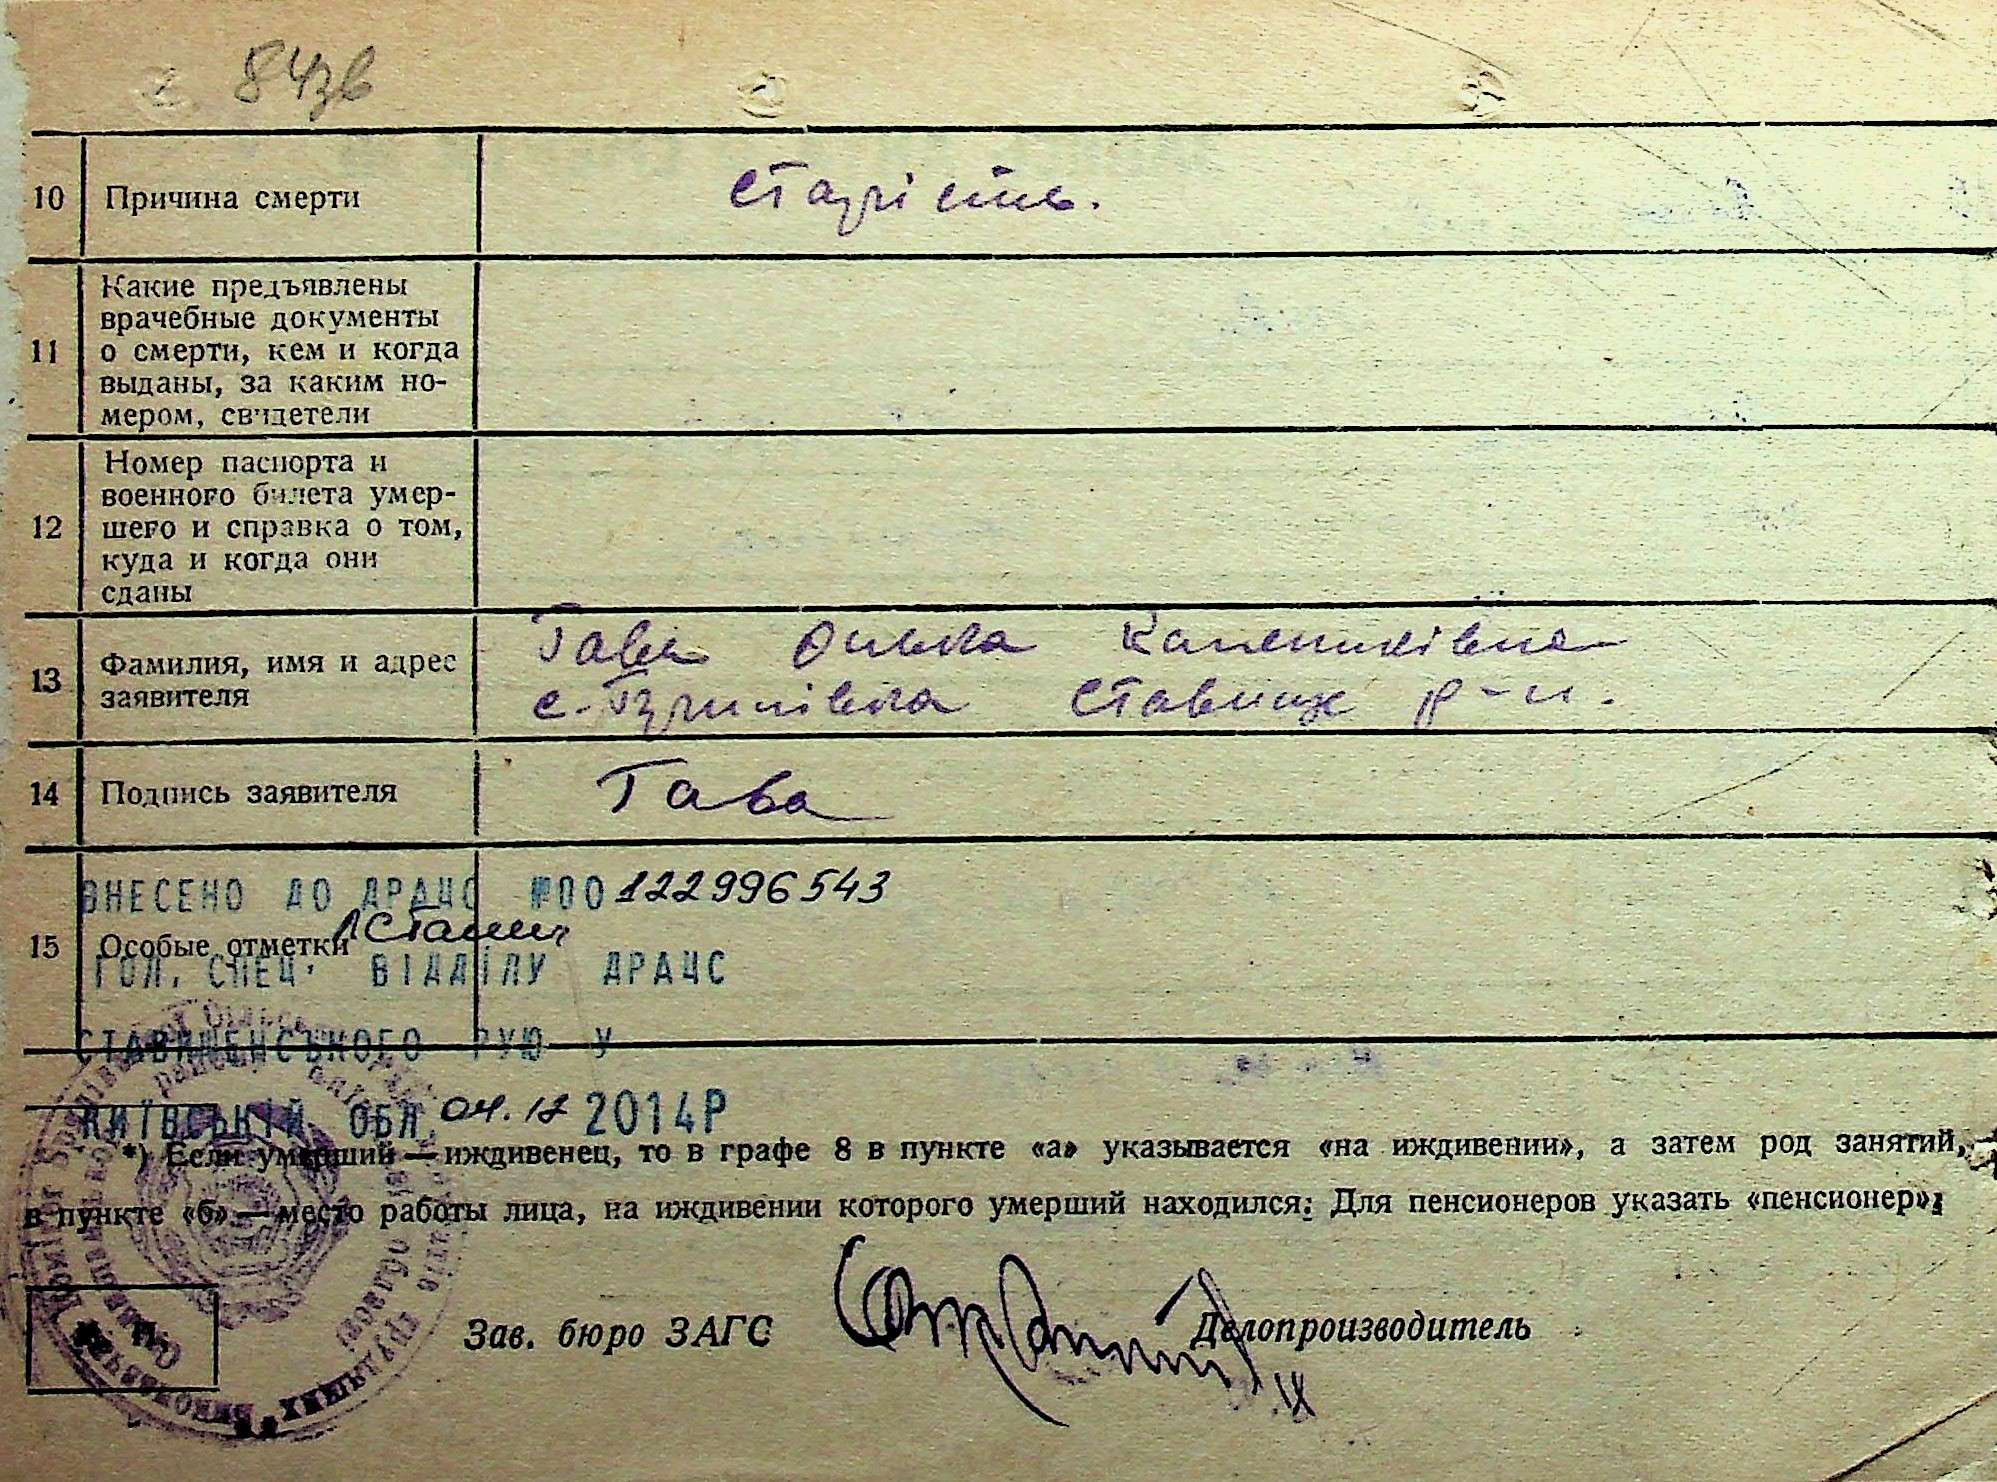 84зв
10 Причина смерти
Старість.
11 Какие предъявлены
врачебные документы
о смерти, кем и когда
выданы, за каким но-
мером, свидетели
12 Номер паспорта и
военного билета умер-
шего и справка о том,
куда и когда они
сданы
13 Фамилия, имя и адрес
заявителя
Гава Ольга
с. Ставищ р-н.
14 Подпись заявителя
Гава
ВНЕСЕНО ДО ДРАЦС №00122996543
15 Особые отметки
ГОЛ. СПЕЦ. ВІДДІЛУ ДРАЦС
СТАВИЩЕНСЬКОГО РУЮ У
КИЇВСЬКІЙ ОБЛ. 04.12 2014Р
*) Если умерший — иждивенец, то в графе 8 в пункте «а» указывается «на иждивении», а затем род занятий,
в пункте «б» — место работы лица, на иждивении которого умерший находился: Для пенсионеров указать «пенсионер»;
М. П.
Зав. бюро ЗАГС Делопроизводитель